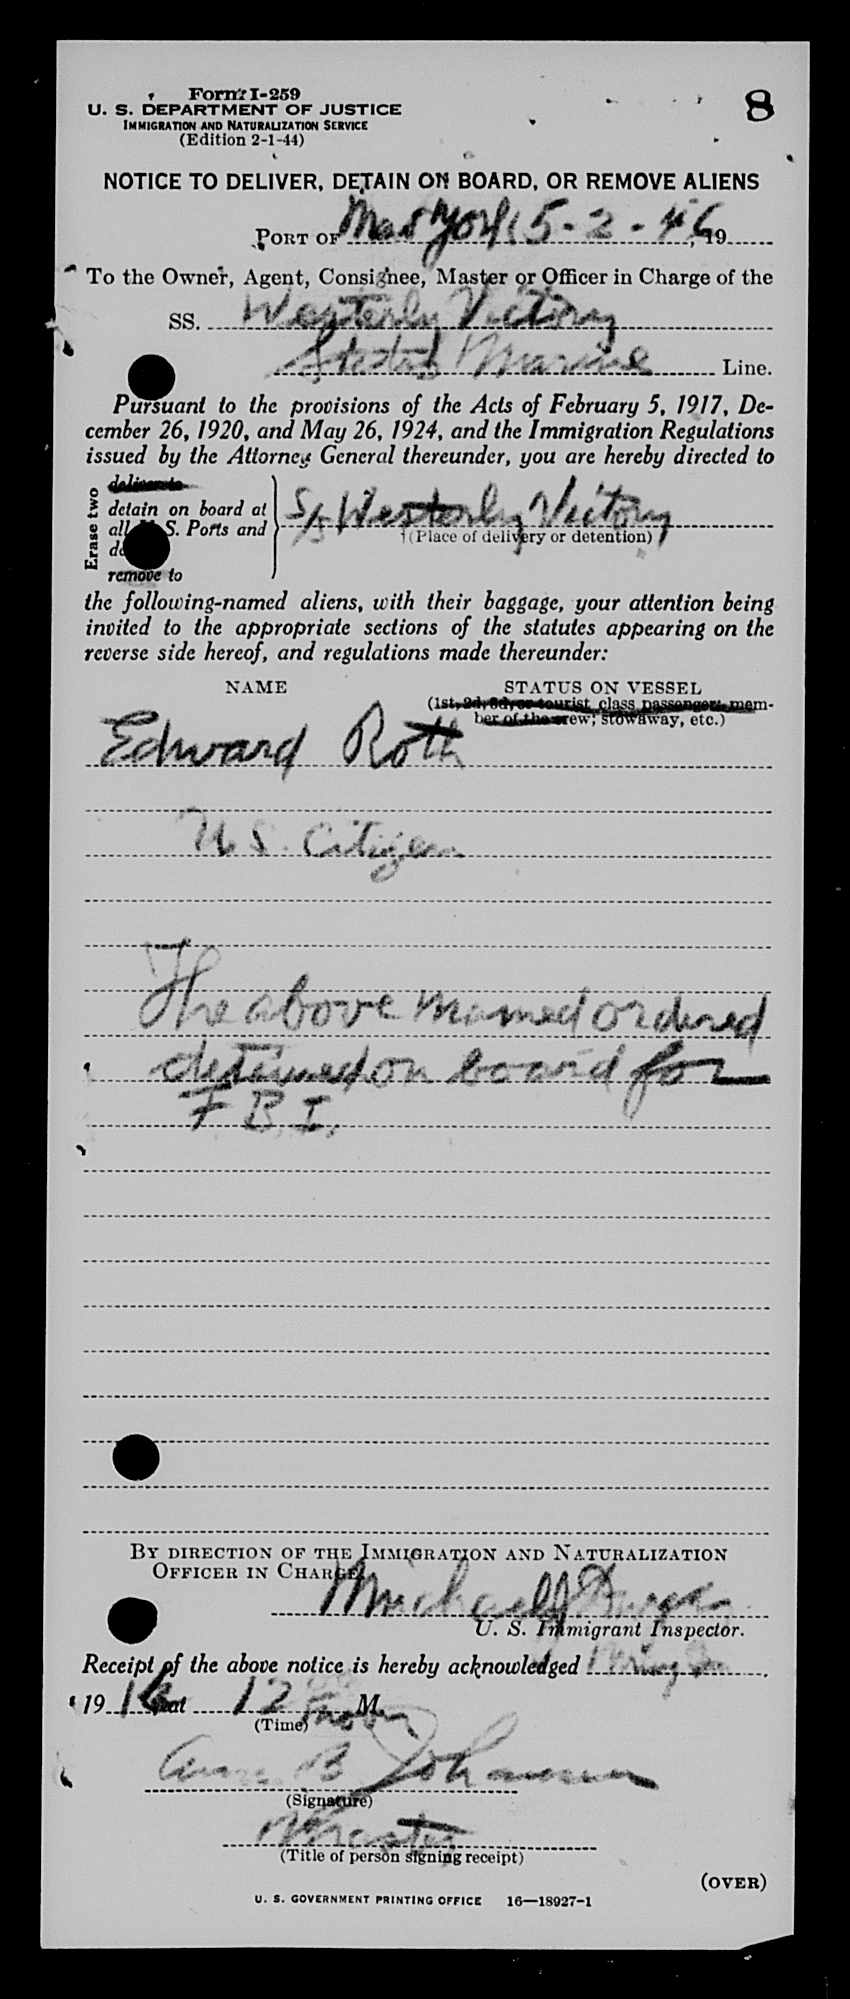 Form I-259
8
U. S. DEPARTMENT OF JUSTICE
IMMIGRATION AND NATURALIZATION SERVICE
(Edition 2-1-44)
NOTICE TO DELIVER, DETAIN ON BOARD, OR REMOVE ALIENS
PORT OF New York 5-2-46, 19
To the Owner, Agent, Consignee, Master or Officer in Charge of the
SS. Westerly Victory
Marine Line.
Pursuant to the provisions of the Acts of February 5, 1917, De-
cember 26, 1920, and May 26, 1924, and the Immigration Regulations
issued by the Attorney General thereunder, you are hereby directed to
Erase two
deliver to
detain on board at
all U. S. Ports and
S/S Westerly Victory
(Place of delivery or detention)
remove to
the following-named aliens, with their baggage, your attention being
invited to the appropriate sections of the statutes appearing on the
reverse side hereof, and regulations made thereunder:
NAME STATUS ON VESSEL
(1st, 2d, 3d, or tourist class passenger; mem-
ber of the crew; stowaway, etc.)
Edward Roth
U.S. Citizen
The above named ordered
detained on board for
F.B.I.
BY DIRECTION OF THE IMMIGRATION AND NATURALIZATION
OFFICER IN CHARGE
Michael J
U. S. Immigrant Inspector.
Receipt of the above notice is hereby acknowledged
19 at 12 noon M.
(Time)
B Johannsen
(Signature)
Master
(Title of person signing receipt)
(OVER)
U. S. GOVERNMENT PRINTING OFFICE 16—18927-1